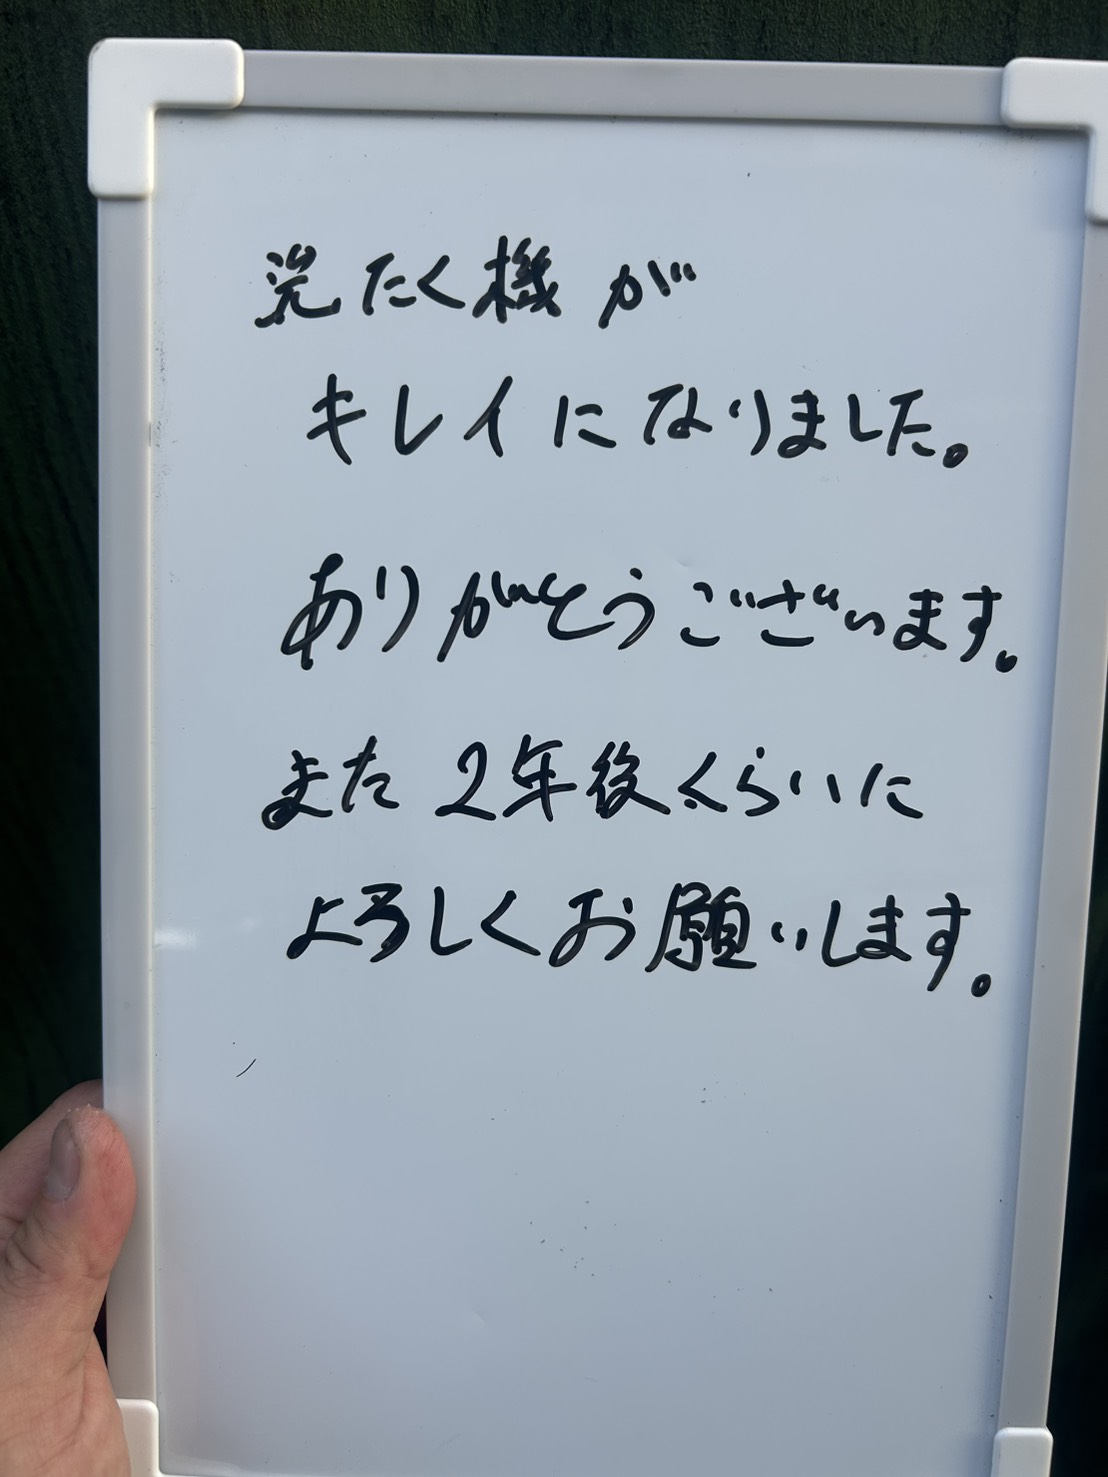 洗たく機が
キレイになりました。
ありがとうございます。
また2年後くらいに
よろしくお願いします。